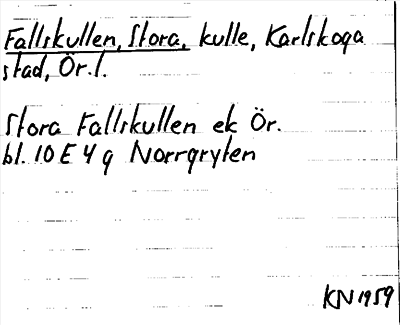 Fallskullen, Stora, kulle, Karlskoga
stad, Ör.l.
Stora Fallskullen ek Ör.
bl. 10 E 4 g Norrgryten
KN 1959